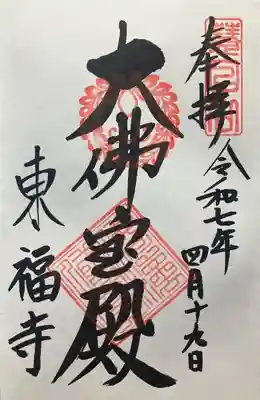 奉拝
令和七年
四月十九日
大佛宝殿
東福寺